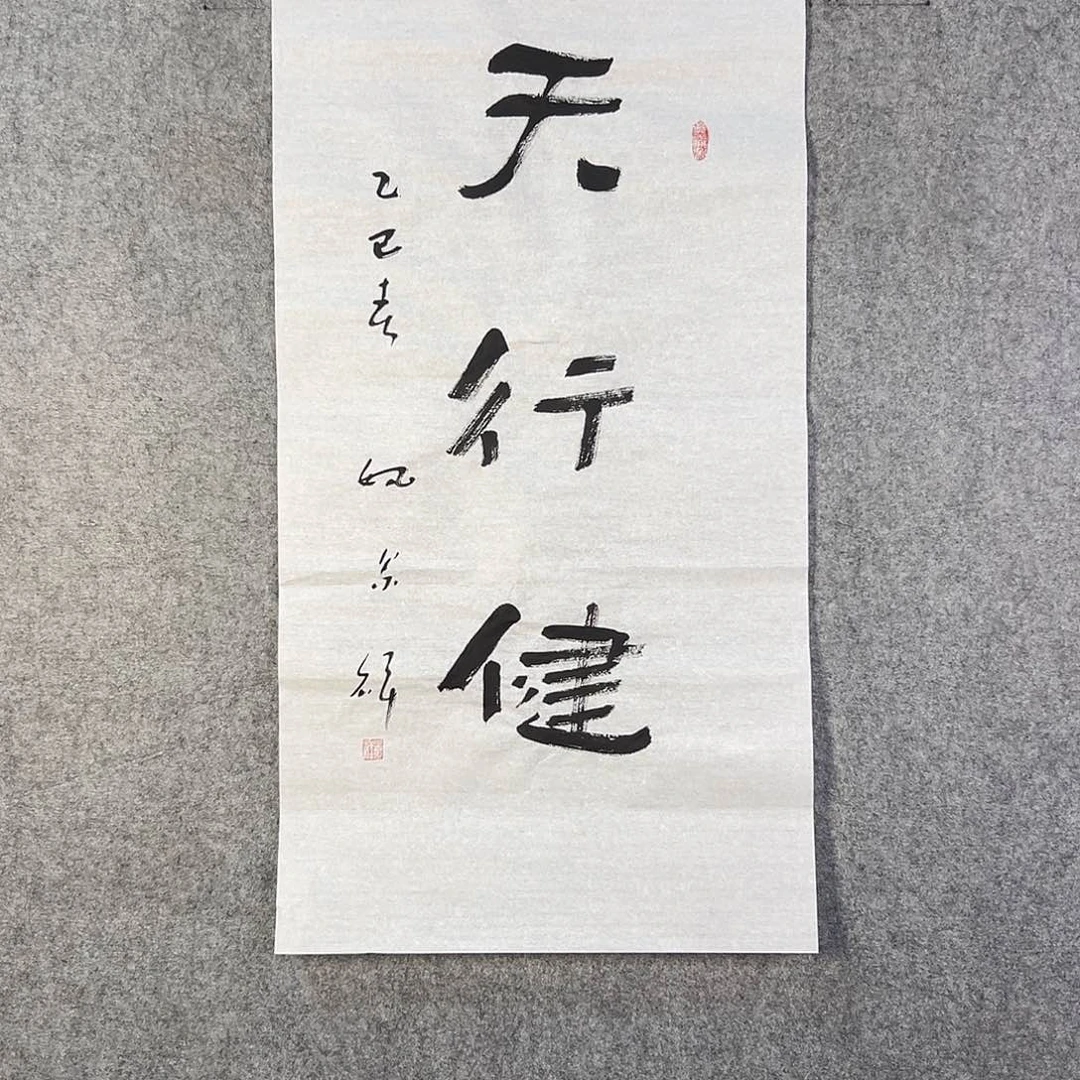 天行健
乙巳春